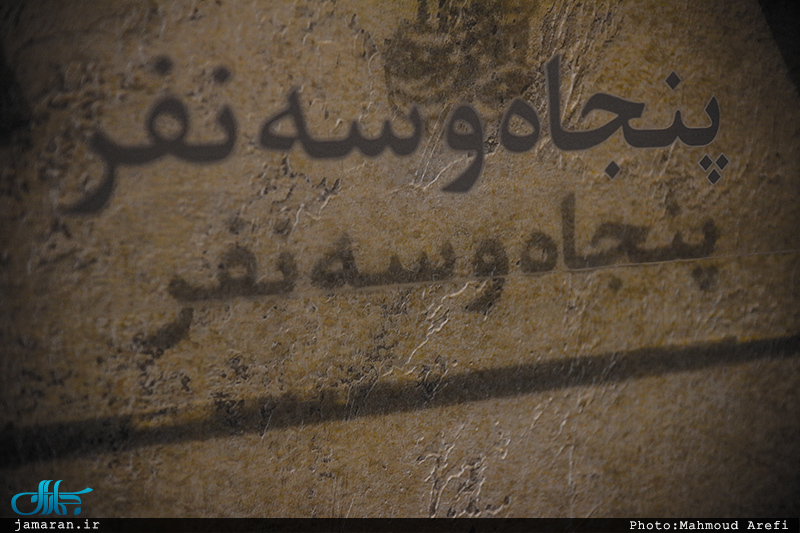 پنجاه و سه نفر
پنجاه و سه نفر
جماران
jamaran.ir
Photo:Mahmoud Arefi